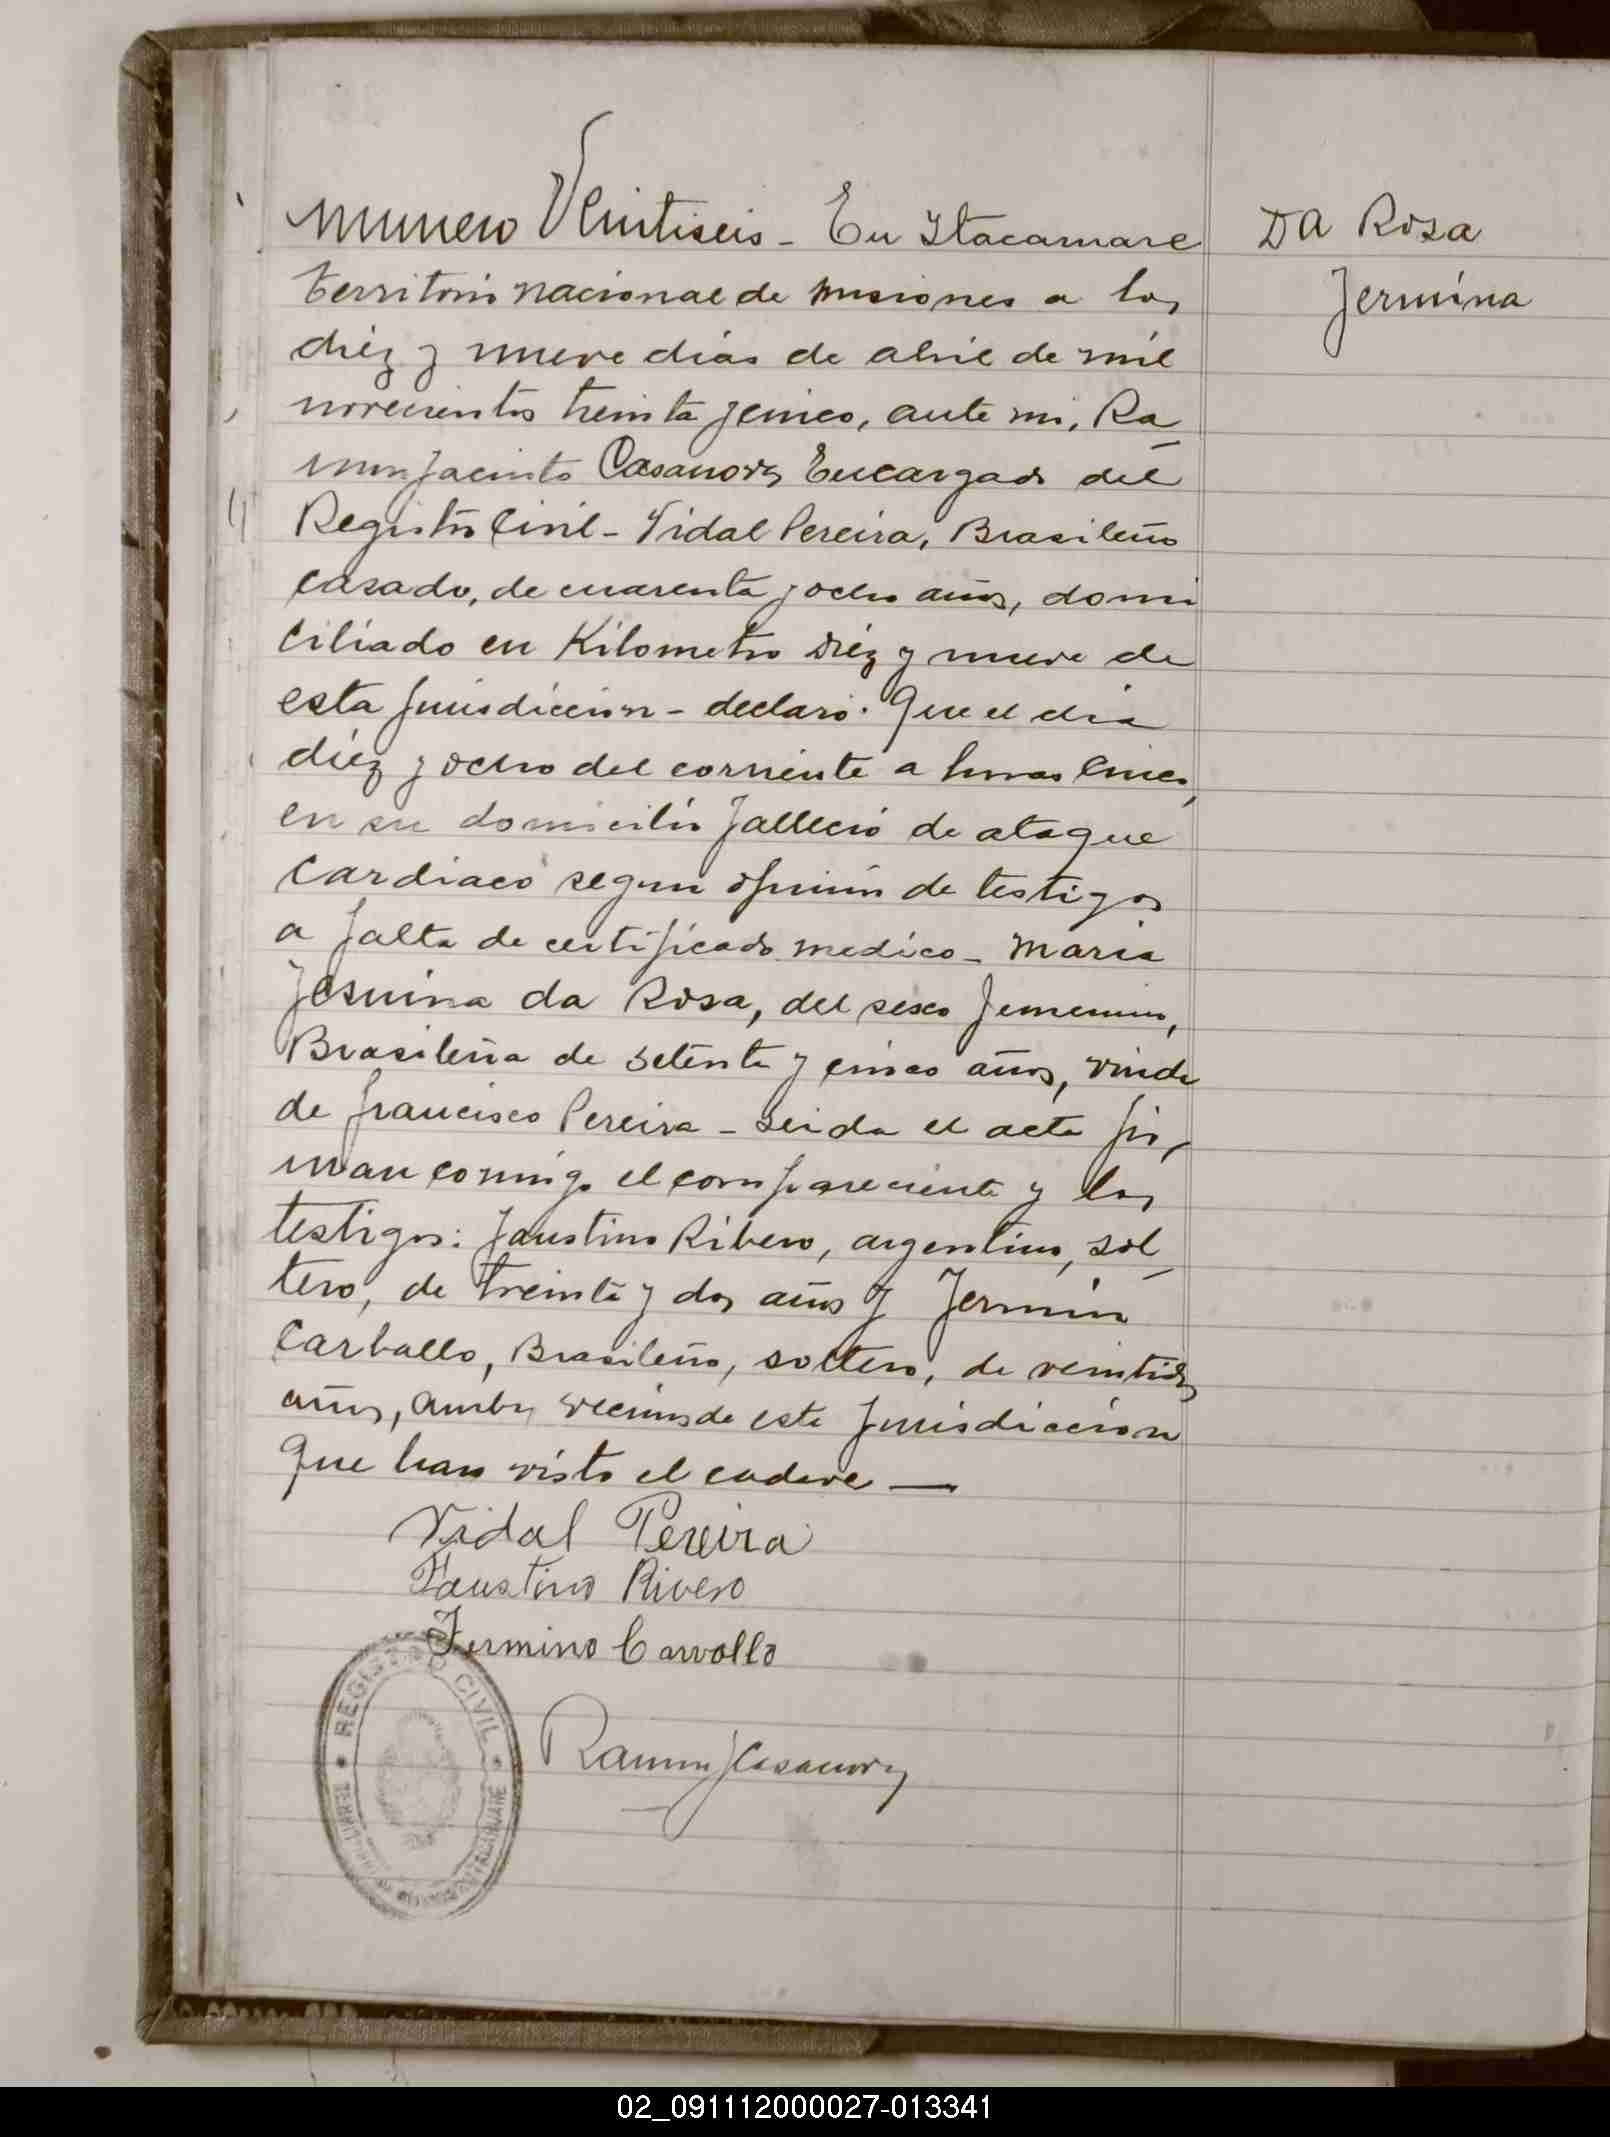 Numero Veintiseis - En Itacaruare
territorio nacional de misiones a los
diéz y nueve dias de abril de mil
novecientos treinta y cinco, ante mi, Ra
mon Jacinto Casanova Encargado del
Registro Civil - Vidal Pereira, Brasileño
casado, de cuarenta y ocho años, domi
ciliado en Kilometro Diéz y nueve de
esta jurisdiccion - declaró: Que el dia
diéz y ocho del corriente a horas cinco,
en su domicilio falleció de ataque
cardiaco segun opinión de testigos
a falta de certificado medico - Maria
Jesuina da Rosa, del sexo femenino,
Brasileña de setenta y cinco años, viuda
de Francisco Pereira - Leida el acta fir
man conmigo el compareciente y los
testigos: Faustino Ribero, argentino, sol
tero, de treinta y dos años y Fermin
Carballo, Brasileño, soltero, de veintidos
años, ambos vecinos de esta jurisdiccion
que han visto el cadave —
Vidal Pereira
Faustino Rivero
Fermino Carvallo
Ramon J Casanova
DA Rosa
Jermina
REGISTRO CIVIL
02_091112000027-013341